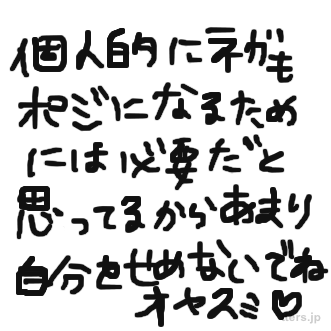 個人的にネガも
ポジになるため
には必要だと
思ってるからあまり
自分をせめないでね
オヤスミ♡
ters.jp